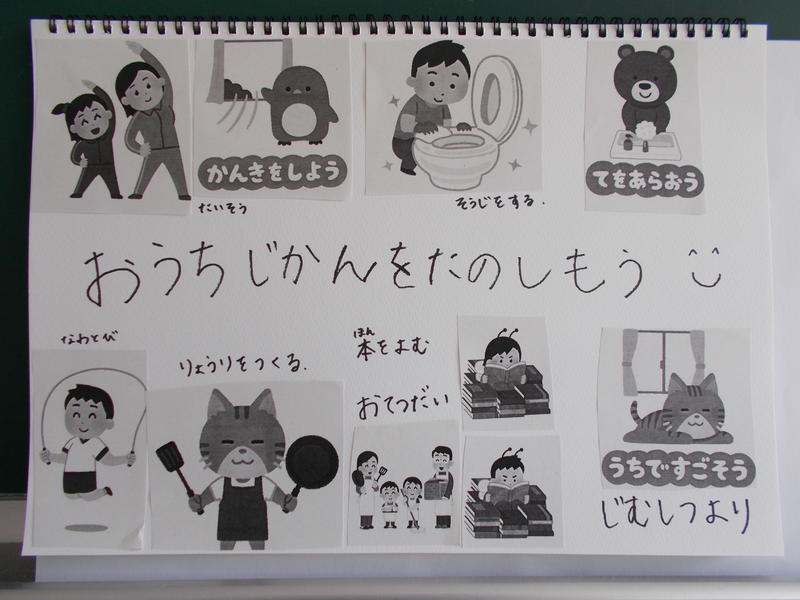 かんきをしよう
てをあらおう
たいそう
そうじをする.
おうちじかんをたのしもう
なわとび
りょうりをつくる.
ほん
本をよむ
おてつだい
うちですごそう
じむしつより